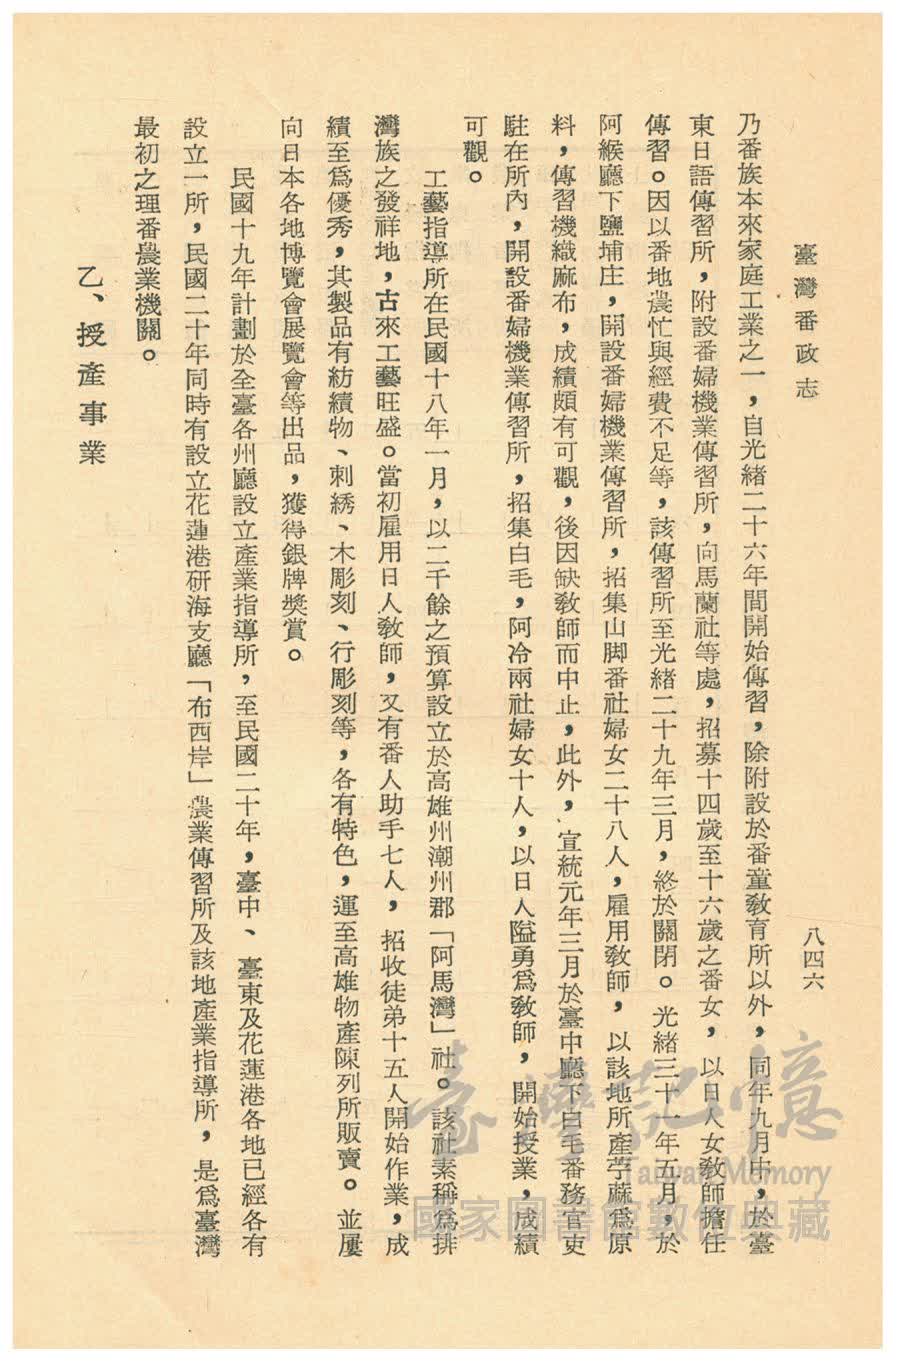 臺灣番政志
八四六
乃番族本來家庭工業之一，自光緒二十六年間開始傳習，除附設於番童教育所以外，同年九月中，於臺
東日語傳習所，附設番婦機業傳習所，向馬蘭社等處，招募十四歲至十六歲之番女，以日人女教師擔任
傳習。因以番地農忙與經費不足等，該傳習所至光緒二十九年三月，終於關閉。光緒三十一年五月，於
阿緱廳下鹽埔庄，開設番婦機業傳習所，招集山脚番社婦女二十八人，雇用教師，以該地所產苧蔴爲原
料，傳習機織麻布，成績頗有可觀，後因缺教師而中止，此外，宣統元年三月於臺中廳下白毛番務官吏
駐在所內，開設番婦機業傳習所，招集白毛，阿冷兩社婦女十人，以日人隘勇爲教師，開始授業，成績
可觀。
工藝指導所在民國十八年一月，以二千餘之預算設立於高雄州潮州郡「阿馬灣」社。該社素稱爲排
灣族之發祥地，古來工藝旺盛。當初雇用日人教師，又有番人助手七人，招收徒弟十五人開始作業，成
績至爲優秀，其製品有紡績物、刺綉、木彫刻、行彫刻等，各有特色，運至高雄物產陳列所販賣。並屢
向日本各地博覽會展覽會等出品，獲得銀牌獎賞。
民國十九年計劃於全臺各州廳設立產業指導所，至民國二十年，臺中、臺東及花蓮港各地已經各有
設立一所，民國二十年同時有設立花蓮港研海支廳「布西岸」農業傳習所及該地產業指導所，是爲臺灣
最初之理番農業機關。
乙、授產事業
臺灣記憶
Taiwan Memory
國家圖書館數位典藏